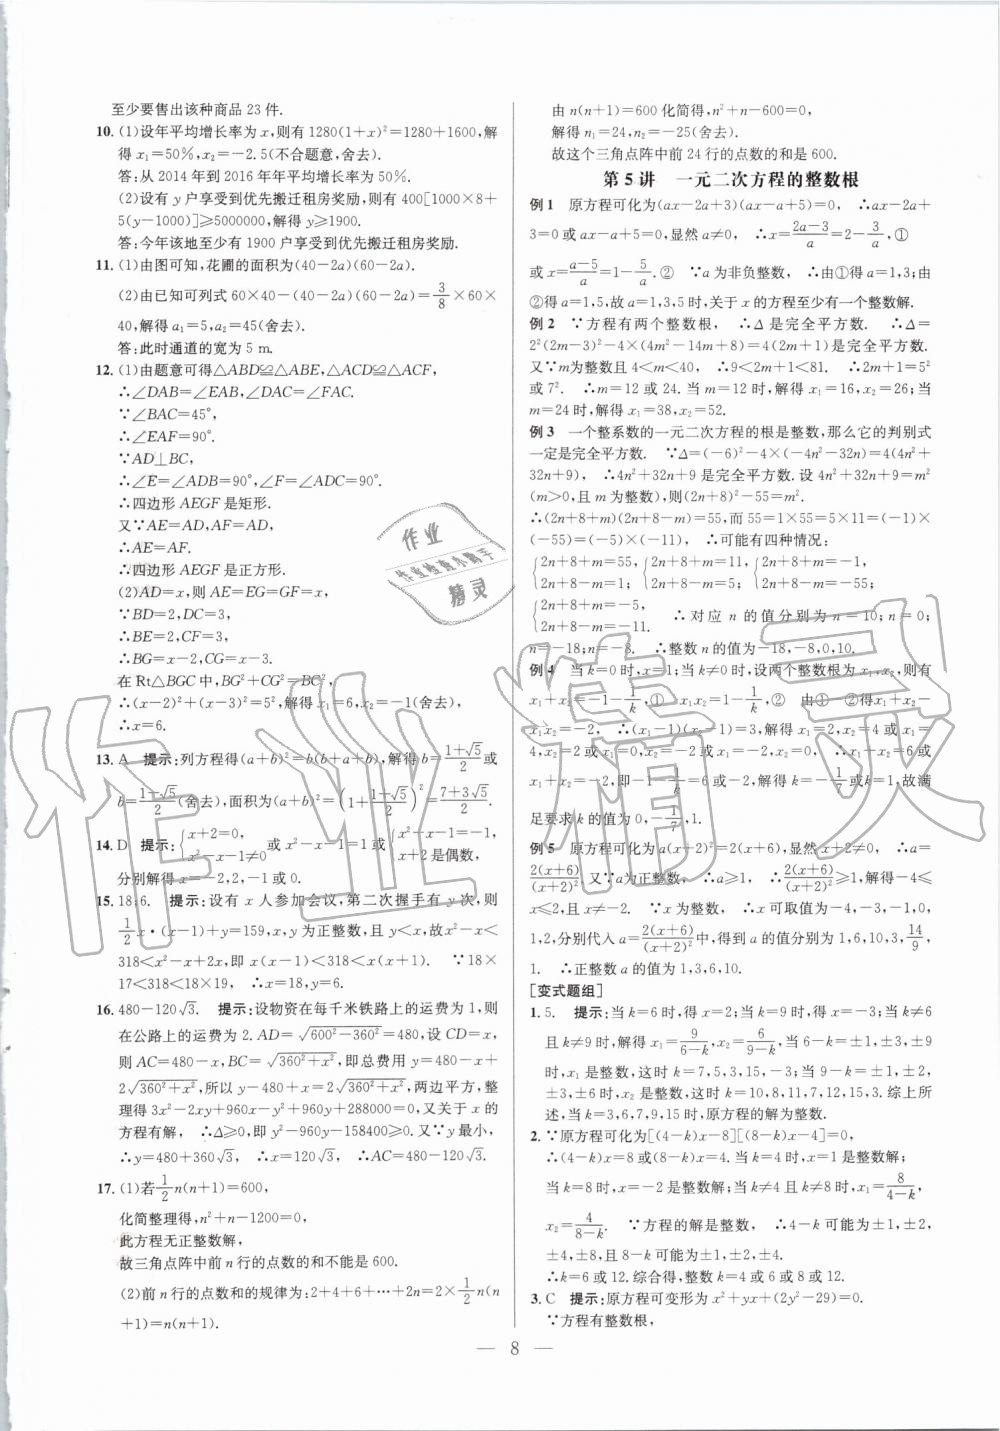 至少要售出该种商品 23 件.
10. (1)设年平均增长率为 x,则有 1280(1+x)²=1280+1600,解
得 x₁=50%,x₂=-2.5(不合题意,舍去).
答:从 2014 年到 2016 年年平均增长率为 50%.
(2)设有 y 户享受到优先搬迁租房奖励,则有 400[1000×8+
5(y-1000)]≥5000000,解得 y≥1900.
答:今年该地至少有 1900 户享受到优先搬迁租房奖励.
11. (1)由图可知,花圃的面积为(40-2a)(60-2a).
(2)由已知可列式 60×40-(40-2a)(60-2a)=3/8×60×
40,解得 a₁=5,a₂=45(舍去).
答:此时通道的宽为 5 m.
12. (1)由题意可得△ABD≌△ABE,△ACD≌△ACF,
∴∠DAB=∠EAB,∠DAC=∠FAC.
∵∠BAC=45°,
∴∠EAF=90°.
∵AD⊥BC,
∴∠E=∠ADB=90°,∠F=∠ADC=90°.
∴四边形 AEGF 是矩形.
又∵AE=AD,AF=AD,
∴AE=AF.
∴四边形 AEGF 是正方形.
(2)AD=x,则 AE=EG=GF=x.
∵BD=2,DC=3,
∴BE=2,CF=3.
∴BG=x-2,CG=x-3.
在 Rt△BGC 中,BG²+CG²=BC²,
∴(x-2)²+(x-3)²=5²,解得 x₁=6,x₂=-1(舍去),
∴x=6.
13. A 提示:列方程得(a+b)²=b(b+a+b),解得 b=(1+√5)/2或
b=(1-√5)/2(舍去),面积为(a+b)²=(1+(1+√5)/2)²=(7+3√5)/2.
14. D 提示:{x+2=0, x²-x-1≠0 或 x²-x-1=1 或{x²-x-1=-1, x+2 是偶数,
分别解得 x=-2,2,-1 或 0.
15. 18;6 提示:设有 x 人参加会议,第二次握手有 y 次,则
1/2x·(x-1)+y=159,x,y 为正整数,且 y<x,故 x²-x<
318<x²-x+2x,即 x(x-1)<318<x(x+1). ∵18×
17<318<18×19,∴x=18,y=6.
16. 480-120√3 提示:设物资在每千米铁路上的运费为 1,则
在公路上的运费为 2. AD=√(600²-360²)=480,设 CD=x,
则 AC=480-x,BC=√(360²+x²),即总费用 y=480-x+
2√(360²+x²),所以 y-480+x=2√(360²+x²),两边平方,整
理得 3x²-2xy+960x-y²+960y+288000=0,又关于 x 的
方程有解, ∴Δ≥0,即 y²-960y-158400≥0. 又∵y 最小,
∴y=480+360√3, ∴x=120√3, ∴AC=480-120√3.
17. (1)若1/2n(n+1)=600,
化简整理得,n²+n-1200=0,
此方程无正整数解,
故三角点阵中前 n 行的点数的和不能是 600.
(2)前 n 行的点数和的规律为:2+4+6+…+2n=2×1/2n(n
+1)=n(n+1).
由 n(n+1)=600 化简得,n²+n-600=0,
解得 n₁=24,n₂=-25(舍去).
故这个三角点阵中前 24 行的点数的和是 600.
第 5 讲 一元二次方程的整数根
例 1 原方程可化为(ax-2a+3)(ax-a+5)=0, ∴ax-2a+
3=0 或 ax-a+5=0,显然 a≠0, ∴x=(2a-3)/a=2-3/a,①
或 x=(a-5)/a=1-5/a.② ∵a 为非负整数,∴由①得 a=1,3;由
②得 a=1,5,故 a=1,3,5 时,关于 x 的方程至少有一个整数解.
例 2 ∵方程有两个整数根, ∴Δ 是完全平方数. ∴Δ=
2²(2m-3)²-4×(4m²-14m+8)=4(2m+1)是完全平方数.
又∵m为整数且 4<m<40, ∴9<2m+1<81. ∴2m+1=5²
或 7². ∴m=12 或 24. 当 m=12 时,解得 x₁=16,x₂=26;当
m=24 时,解得 x₁=38,x₂=52.
例 3 一个整系数的一元二次方程的根是整数,那么它的判别式
一定是完全平方数. ∵Δ=(-6)²-4×(-4n²-32n)=4(4n²+
32n+9), ∴4n²+32n+9 是完全平方数. 设 4n²+32n+9=m²
(m>0,且 m 为整数),则(2n+8)²-55=m².
∴(2n+8+m)(2n+8-m)=55,而 55=1×55=5×11=(-1)×
(-55)=(-5)×(-11), ∴可能有四种情况:
{2n+8+m=55, 2n+8-m=1; {2n+8+m=11, 2n+8-m=5; {2n+8+m=-1, 2n+8-m=-55;
{2n+8+m=-5, 2n+8-m=-11. ∴对应 n 的值分别为 n=10;n=0;
n=-18;n=-8. ∴整数 n 的值为-18,-8,0,10.
例 4 当 k=0 时,x=1;当 k≠0 时,设两个整数根为 x₁,x₂,则有
x₁+x₂=-1-1/k,① x₁x₂=1-1/k. ② 由①-②得x₁+x₂-
x₁x₂=-2, ∴(x₁-1)(x₂-1)=3,解得 x₁=4,x₂=2 或
x₁=2,x₂=4 或 x₁=0,x₂=-2 或 x₁=-2,x₂=0. ∴x₁+x₂=6 或
x₁+x₂=-2,即-1-1/k=6 或-2,解得 k=-1/7或 k=1,故满
足要求 k 的值为 0,-1/7,1.
例 5 原方程可化为 a(x+2)²=2(x+6),显然 x+2≠0, ∴a=
2(x+6)/(x+2)². 又∵a为正整数, ∴a≥1, ∴2(x+6)/(x+2)²≥1,解得-4≤
x≤2,且 x≠-2. ∵x 为整数,∴x 可取值为-4,-3,-1,0,
1,2,分别代入 a=2(x+6)/(x+2)²中,得到 a 的值分别为 1,6,10,3,14/9,
1. ∴正整数 a 的值为 1,3,6,10.
[变式题组]
1. 5. 提示:当 k=6 时,得 x=2;当 k=9 时,得 x=-3;当 k≠6
且 k≠9 时,解得 x₁=9/(6-k),x₂=6/(9-k),当 6-k=±1,±3,±9
时,x₁是整数,这时 k=7,5,3,15,-3;当 9-k=±1,±2,
±3,±6 时,x₂是整数,这时 k=10,8,11,7,12,15,3. 综上所
述,当 k=3,6,7,9,15 时,原方程的解为整数.
2. ∵原方程可化为[(4-k)x-8][(8-k)x-4]=0,
∴(4-k)x=8 或(8-k)x=4. 当 k=4 时,x=1,是整数解;
当 k=8 时,x=-2 是整数解;当 k≠4 且 k≠8 时,x₁=8/(4-k),
x₂=4/(8-k). ∵方程的解是整数,∴4-k 可能为±1,±2,
±4,±8,且 8-k 可能为±1,±2,±4.
∴k=6 或 12. 综合得,整数 k=4 或 6 或 8 或 12.
3. C 提示:原方程可变形为 x²+yx+(2y²-29)=0.
∵方程有整数根,
— 8 —
作业
作业检查小助手
精灵
作业精灵